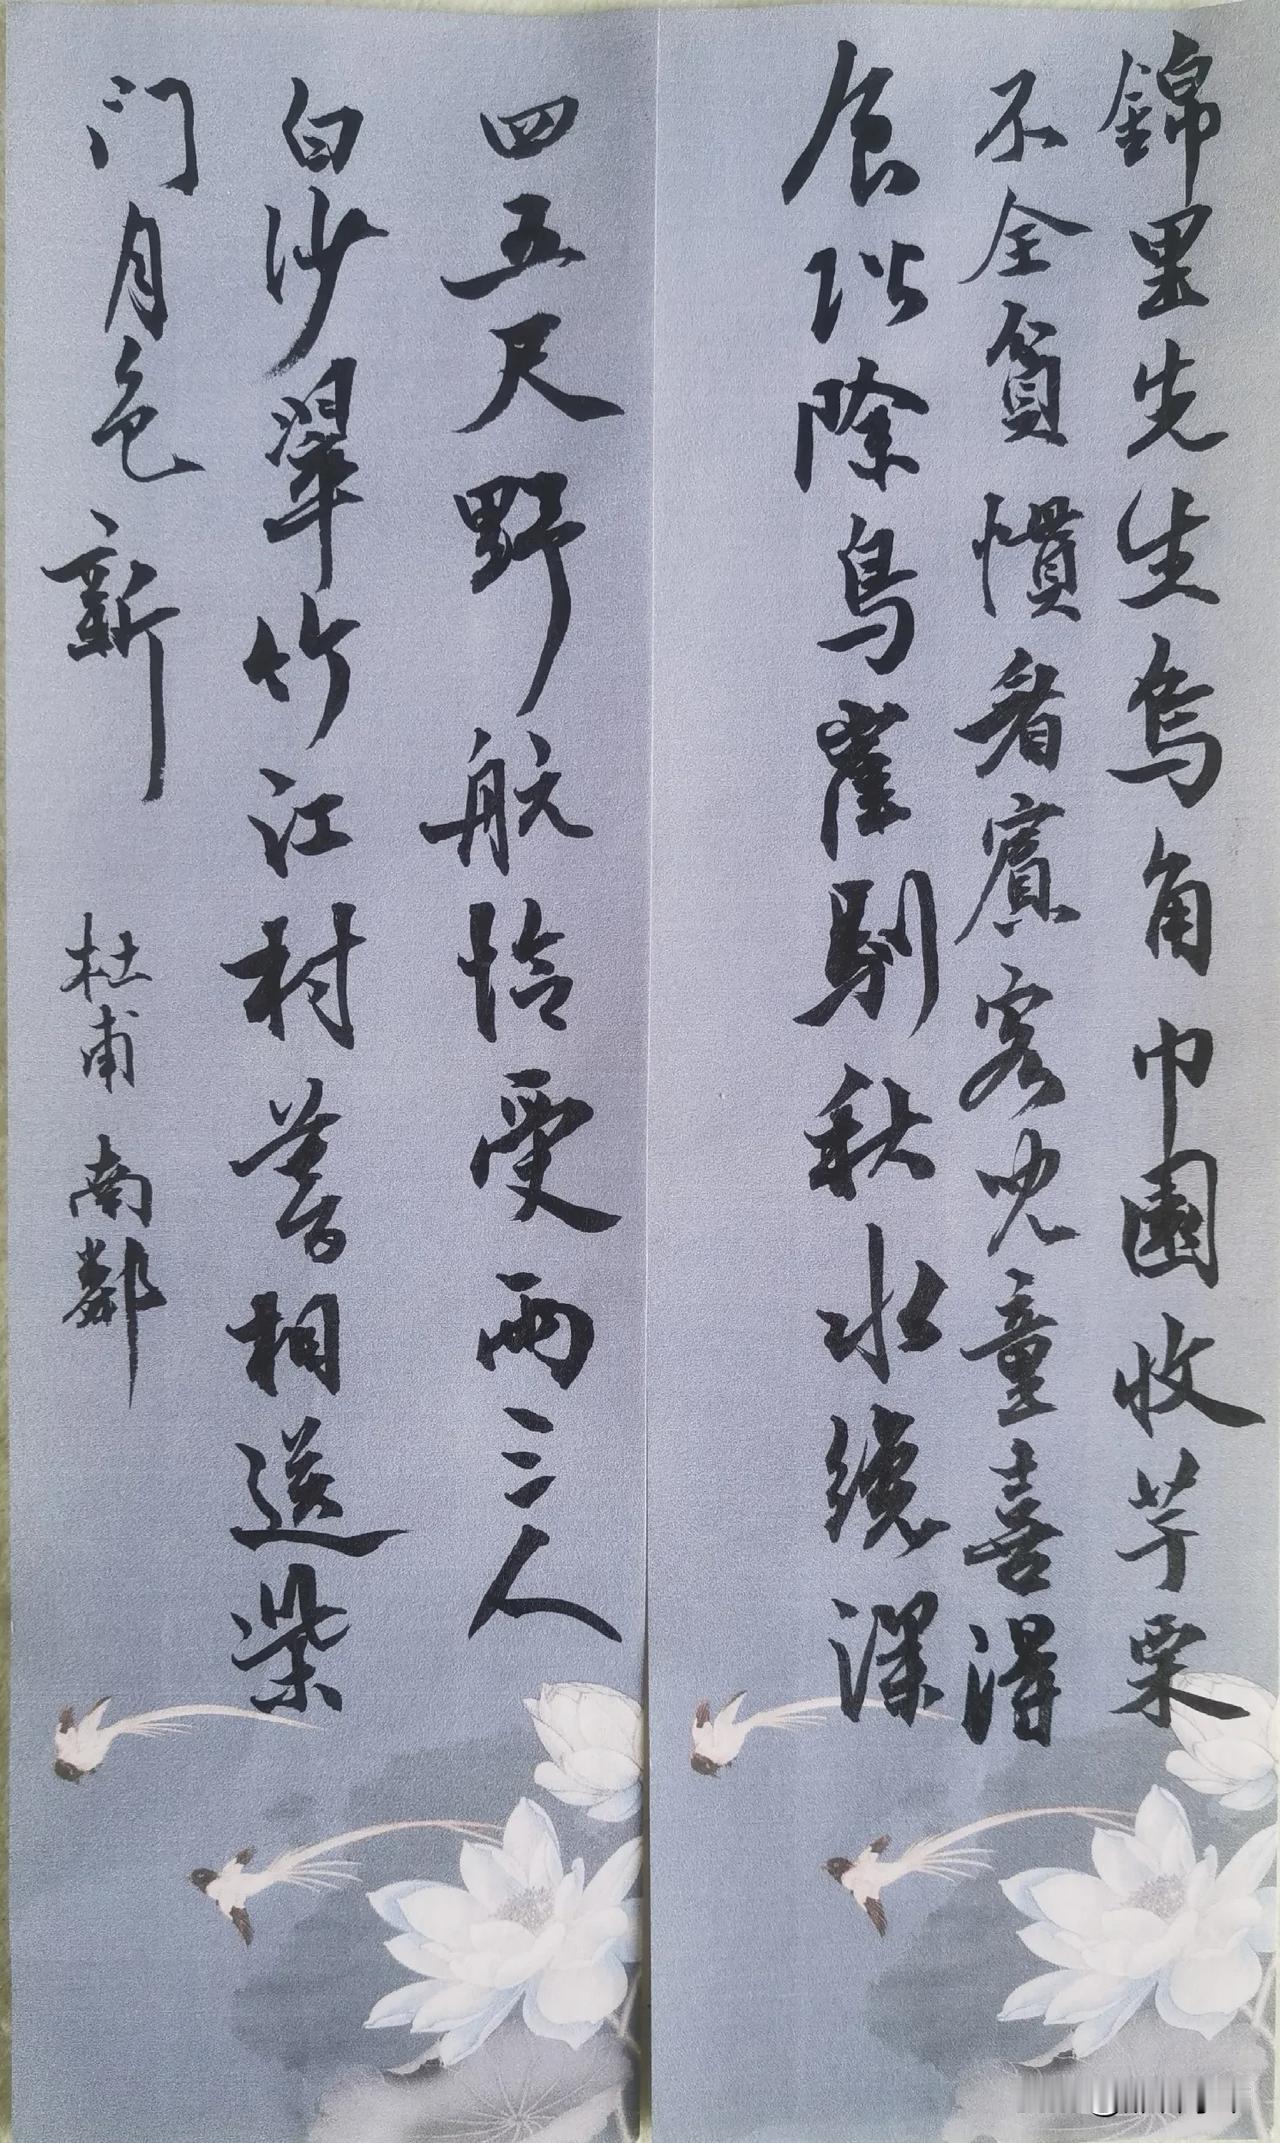 錦里先生烏角巾園收芋栗
不全貧慣看賓客兒童喜得
食阶除鸟雀馴秋水纔深
四五尺野航恰受两三人
白沙翠竹江村暮相送柴
门月色新
杜甫 南鄰